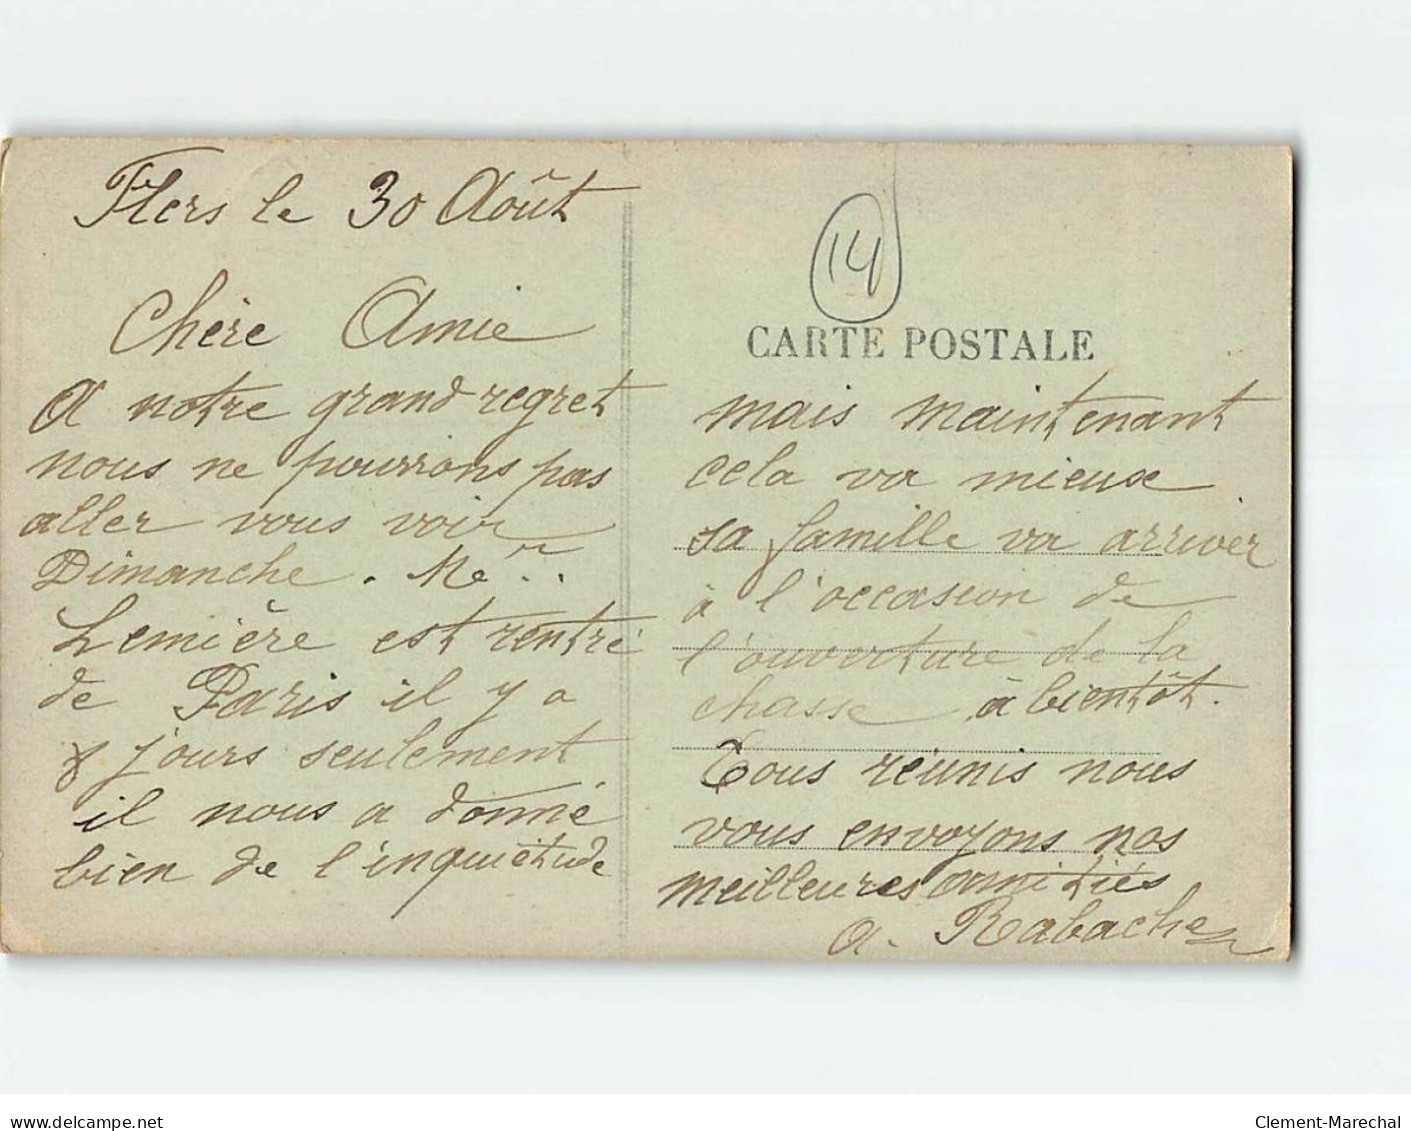 Flers le 30 Août
Chère Amie
A notre grand regret
nous ne pourrons pas
aller vous voir
Dimanche. Me
Lemière est rentré
de Paris il y a
8 jours seulement
il nous a donné
bien de l'inquiétude
14
CARTE POSTALE
mais maintenant
cela va mieux
sa famille va arriver
à l'occasion de
l'ouverture de la
chasse à bientôt.
Tous réunis nous
vous envoyons nos
meilleures amitiés
A. Rabache
www.delcampe.net
Clement-Marechal